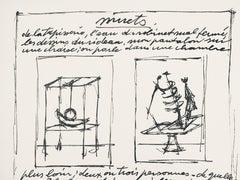 muets
de la tapisserie, l'eau du robinet mal fermé,
les dessins du rideau, mon pantalon sur
une chaise; on parle dans une chambre
plus loin; deux ou trois personnes, de quelle